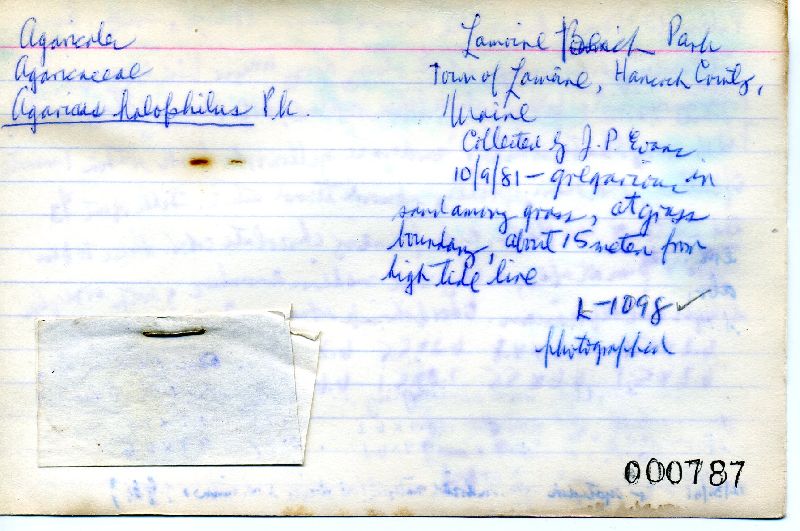 Agaricales
Agaricaceae
Agaricus halophilus Pk.
Lamoine Beach Park
Town of Lamoine, Hancock County,
Maine
Collected by J. P. Evans
10/9/81 - gregarious in
sand among grass, at grass
boundary, about 15 meters from
high tide line
K-1098 ✓
photographed
000787